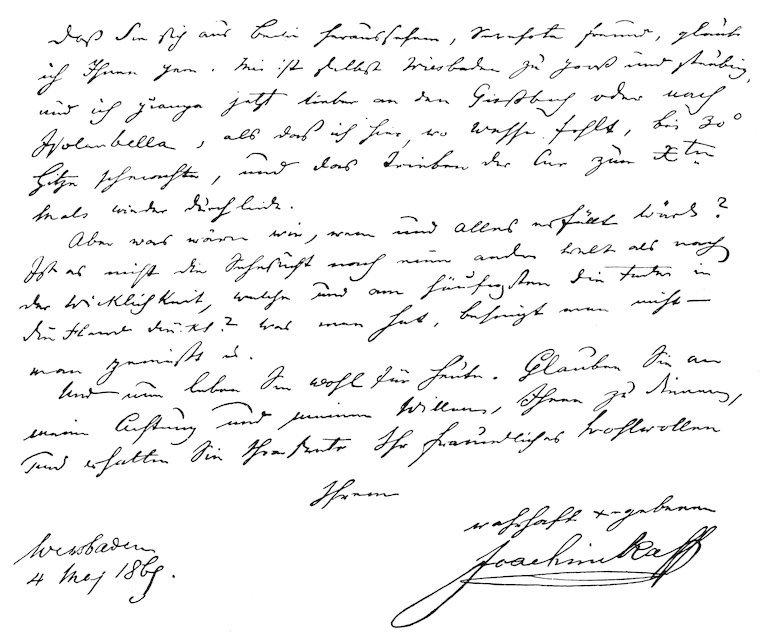 Daß Sie sich aus Berlin heraussehnen, Verehrter Freund, glaube
ich Ihnen gern. Mir ist selbst Wiesbaden zu groß und staubig,
und ich gienge jetzt lieber an den Gießbach oder nach
Isolabella, als daß ich hier, wo Wasser fehlt, bei 30°
Hitze schmachte, und das Treiben der Cur zum Xten
Male wieder durchleide.
Aber was wären wir, wenn uns alles erfüllt würde?
Ist es nicht die Sehnsucht nach einer andern Welt als nach
der Wirklichkeit, welche uns am häufigsten die Feder in
die Hand drückt? Was man hat, besingt man nicht –
man genießt es.
Und nun leben Sie wohl für heute. Glauben Sie an
meine Achtung und meinen Willen, Ihnen zu dienen,
und erhalten Sie Ihr freundliches Wohlwollen
Ihrem
wahrhaft ergebenen
Joachim Raff
Wiesbaden
4 Mai 186